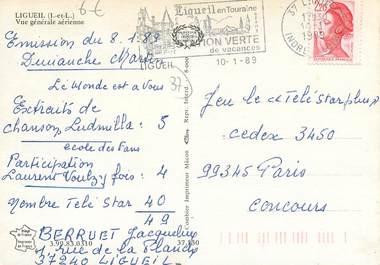 LIGUEIL (I.-et-L.)
Vue générale aérienne
6€
Emission du 8.1.89
Dimanche Martin
Le Monde est a Vous
37
Extraits de
chanson Ludmilla : 5
école des fans
Participation
Laurent Voulzy fois : 4
Nombre Télé Star 40
49
BERRUET Jacqueline
1 rue de la
37240 LIGUEIL
3.99.83.0310
37.130
Combier Imprimeur Mâcon
Ligueil en Touraine
STATION VERTE
de vacances
LIGUEIL
10-1-89
37 LIGUEIL
1989
Jeu le « Télé Star plus »
cedex 3450
99345 Paris
Concours